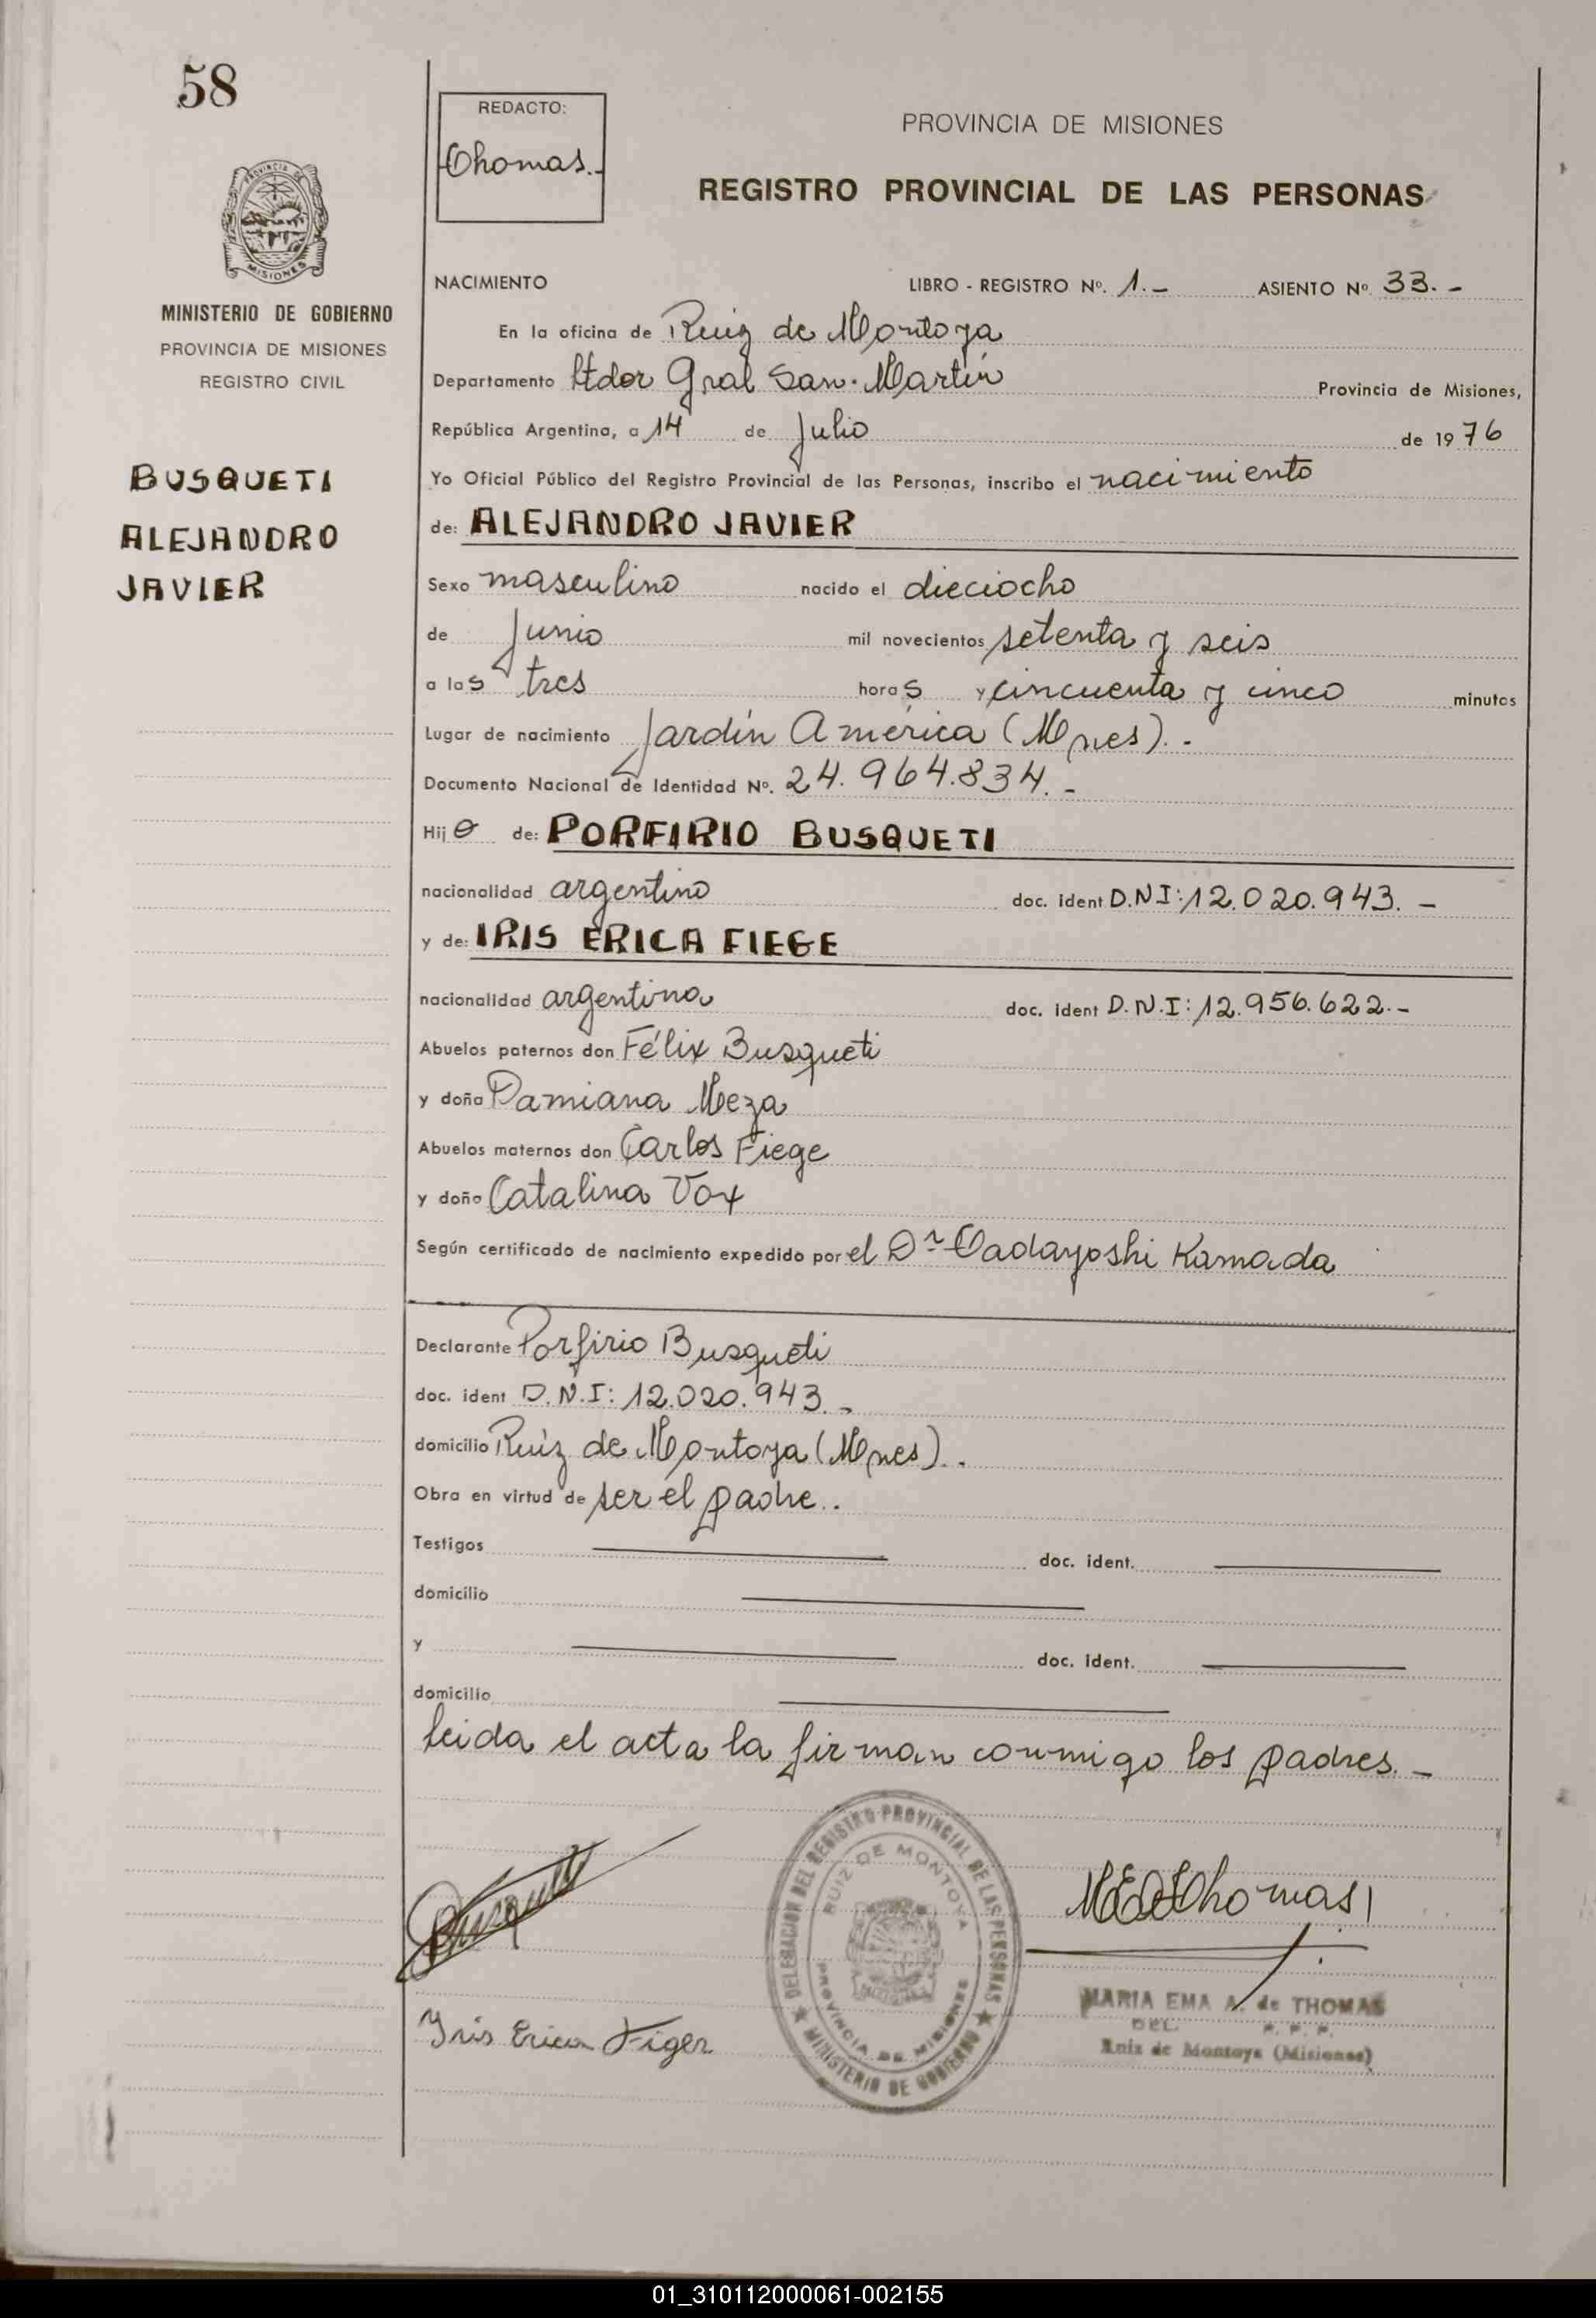 58
REDACTO:
Thomas.-
PROVINCIA DE MISIONES
REGISTRO PROVINCIAL DE LAS PERSONAS
PROVINCIA DE
MISIONES
MINISTERIO DE GOBIERNO
PROVINCIA DE MISIONES
REGISTRO CIVIL
BUSQUETI
ALEJANDRO
JAVIER
NACIMIENTO LIBRO - REGISTRO Nº. 1.- ASIENTO Nº 33.-
En la oficina de Ruiz de Montoya
Departamento Ltdor Gral San Martín Provincia de Misiones,
República Argentina, a 14 de Julio de 1976
Yo Oficial Público del Registro Provincial de las Personas, inscribo el nacimiento
de: ALEJANDRO JAVIER
Sexo masculino nacido el dieciocho
de Junio mil novecientos setenta y seis
a las tres horas y cincuenta y cinco minutos
Lugar de nacimiento Jardín América (Mnes).-
Documento Nacional de Identidad Nº. 24.964.834.-
Hijo de: PORFIRIO BUSQUETI
nacionalidad argentino doc. ident D.N.I: 12.020.943.-
y de: IRIS ERICA FIEGE
nacionalidad argentina doc. ident D.N.I: 12.956.622.-
Abuelos paternos don Félix Busqueti
y doña Damiana Meza
Abuelos maternos don Carlos Fiege
y doña Catalina Vox
Según certificado de nacimiento expedido por el Dr Tadayoshi Kamada
Declarante Porfirio Busqueti
doc. ident D.N.I: 12.020.943.-
domicilio Ruíz de Montoya (Mnes)..
Obra en virtud de ser el padre..
Testigos doc. ident.
domicilio
y doc. ident.
domicilio
leida el acta la firman conmigo los padres.-
Busqueti
Iris Erica Figer
DELEGACION DEL REGISTRO PROVINCIAL DE LAS PERSONAS
RUIZ DE MONTOYA
PROVINCIA DE MISIONES
MINISTERIO DE GOBIERNO
MEdeThomas
MARIA EMA A. de THOMAS
DEL. R. P. P.
Ruiz de Montoya (Misiones)
01_310112000061-002155